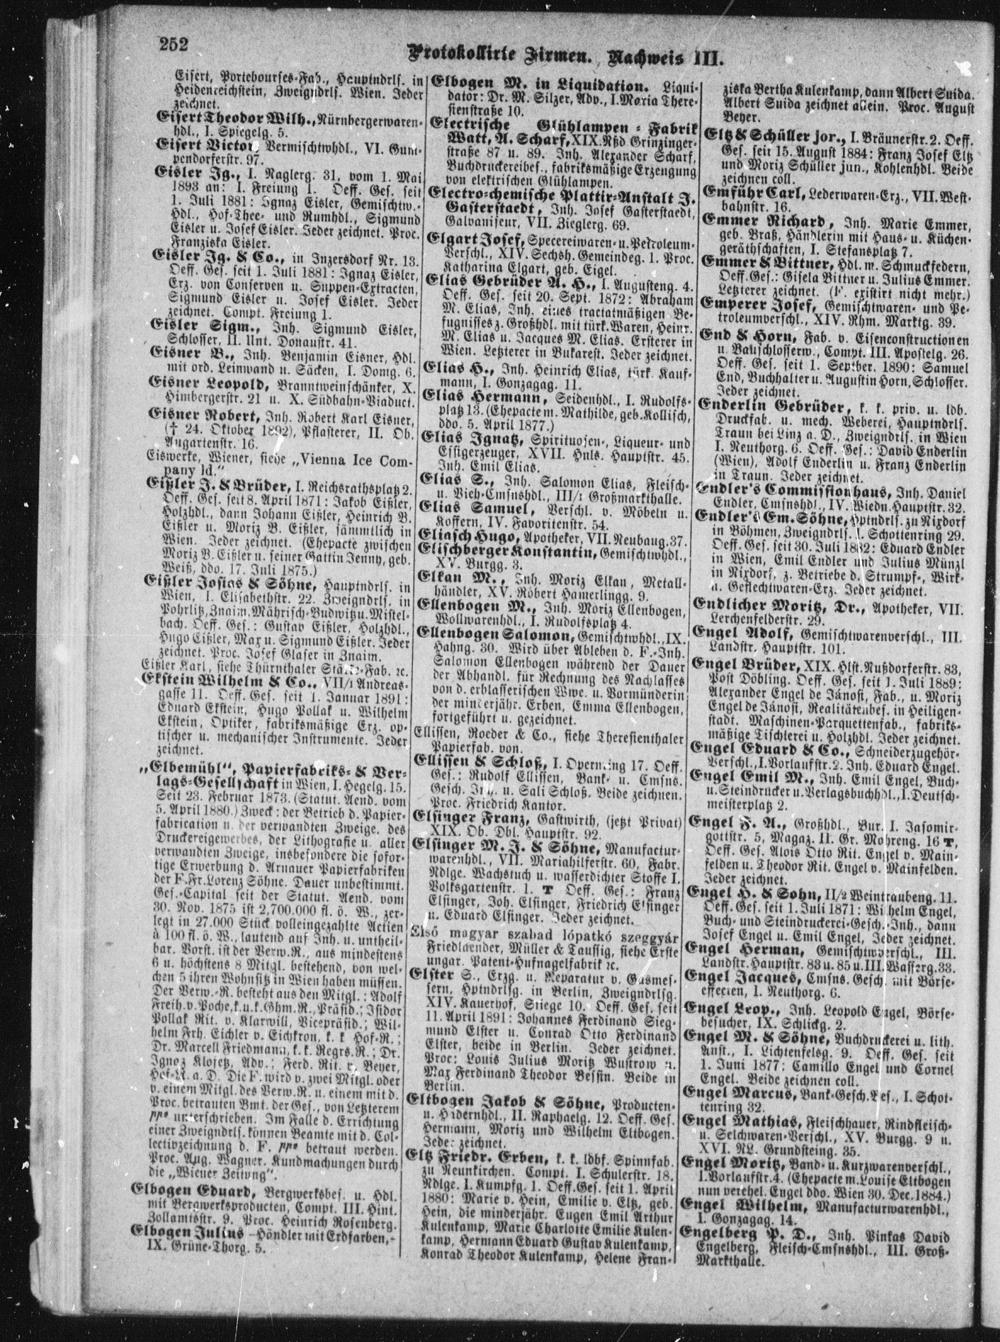 252
Protokollirte Firmen. Nachweis III.
Eisert, Portebourses-Fab., Hauptndrls. in
Heidenreichstein, Zweigndrls. Wien. Jeder
zeichnet.
Eisert Theodor Wilh., Nürnbergerwaren-
hdl., I. Spiegelg. 5.
Eisert Victor, Vermischtwhdl., VI. Gum-
pendorferstr. 97.
Eisler Ig., I. Naglerg. 31, vom 1. Mai
1893 an: I. Freiung 1. Oeff. Ges. seit
1. Juli 1881: Ignaz Eisler, Gemischtw.-
Hdl., Hof-Thee- und Rumhdl., Sigmund
Eisler u. Josef Eisler. Jeder zeichnet. Proc.
Franziska Eisler.
Eisler Ig. & Co., in Inzersdorf Nr. 13.
Oeff. Ges. seit 1. Juli 1881: Ignaz Eisler,
Erz. von Conserven u. Suppen-Extracten,
Sigmund Eisler u. Josef Eisler. Jeder
zeichnet. Compt. Freiung 1.
Eisler Sigm., Inh. Sigmund Eisler,
Schlosser, II. Unt. Donaustr. 41.
Eisner B., Inh. Benjamin Eisner, Hdl.
mit ord. Leinwand u. Säcken, I. Domg. 6.
Eisner Leopold, Branntweinschänker, X.
Himbergerstr. 21 u. X. Südbahn-Viaduct.
Eisner Robert, Inh. Robert Karl Eisner,
(† 24. Oktober 1892), Pflasterer, II. Ob.
Augartenstr. 16.
Eiswerke, Wiener, siehe „Vienna Ice Com-
pany ld."
Eißler J. & Brüder, I. Reichsrathsplatz 2.
Oeff. Ges. seit 8. April 1871: Jakob Eißler,
Holzhdl., dann Johann Eißler, Heinrich B.
Eißler u. Moriz B. Eißler, sämmtlich in
Wien. Jeder zeichnet. (Ehepacte zwischen
Moriz B. Eißler u. seiner Gattin Jenny, geb.
Weiß, ddo. 17. Juli 1875.)
Eißler Josias & Söhne, Hauptndrls. in
Wien, I. Elisabethstr. 22. Zweigndrls. in
Pohrlitz, Znaim, Mährisch-Budwitz u. Mistel-
bach. Oeff. Ges.: Gustav Eißler, Holzhdl.,
Hugo Eißler, Max u. Sigmund Eißler. Jeder
zeichnet. Proc. Josef Glaser in Znaim.
Eißler Karl, siehe Thürnthaler Stärke-Fab. ec.
Ekstein Wilhelm & Co., VII/1 Andreas-
gasse 11. Oeff. Ges. seit 1. Januar 1891:
Eduard Ekstein, Hugo Pollak u. Wilhelm
Ekstein, Optiker, fabriksmäßige Erz. op-
tischer u. mechanischer Instrumente. Jeder
zeichnet.
„Elbemühl", Papierfabriks- & Ver-
lags-Gesellschaft in Wien, I. Hegelg. 15.
Seit 23. Februar 1873. (Statut. Aend. vom
5. April 1880.) Zweck: der Betrieb d. Papier-
fabrication u. der verwandten Zweige, des
Druckereigewerbes, der Lithografie u. aller
verwandten Zweige, insbesondere die sofor-
tige Erwerbung d. Arnauer Papierfabriken
der F. Fr. Lorenz Söhne. Dauer unbestimmt.
Ges.-Capital seit der Statut. Aend. vom
30. Nov. 1875 ist 2,700.000 fl. ö. W., zer-
legt in 27.000 Stück volleingezahlte Actien
à 100 fl. ö. W., lautend auf Inh. u. untheil-
bar. Vorst. ist der Verw.R., aus mindestens
6 u. höchstens 8 Mitgl. bestehend, von wel-
chen 5 ihren Wohnsitz in Wien haben müssen.
Der Verw.-R. besteht aus den Mitgl.: Adolf
Freih. v. Poche, k. u. k. Ghm. R., Präsid.; Isidor
Pollak Rit. v. Klarwill, Vicepräsid.; Wil-
helm Frh. Eichler v. Eichkron, k. k. Hof-R.;
Dr. Marcell Friedmann, k. k. Regrs.R.; Dr.
Ignaz Klojetz, Adv.; Ferd. Rit. v. Beyer,
Hof-R. a. D. Die F. wird v. zwei Mitgl. oder
v. einem Mitgl. des Verw.R. u. einem mit d.
Proc. betrauten Bmt. der Ges., von Letzterem
ppa unterschrieben. Im Falle d. Errichtung
einer Zweigndrls. können Beamte mit d. Col-
lectivzeichnung d. F. ppa betraut werden.
Proc. Aug. Wagner. Kundmachungen durch
die „Wiener Zeitung".
Elbogen Eduard, Bergwerksbes. u. Hdl.
mit Bergwerksproducten, Compt. III. Hint.
Zollamtsstr. 9. Proc. Heinrich Rosenberg.
Elbogen Julius Händler mit Erdfarben,
IX. Grüne-Thorg. 5.
Elbogen M. in Liquidation. Liqui-
dator: Dr. M. Silzer, Adv., I. Maria There-
sienstraße 10.
Electrische Glühlampen-Fabrik
Watt, A. Scharf, XIX. Nßd. Grinzinger-
straße 87 u. 89. Inh. Alexander Scharf,
Buchdruckereibes., fabriksmäßige Erzeugung
von elektrischen Glühlampen.
Electro-chemische Plattir-Anstalt J.
Gasterstaedt, Inh. Josef Gasterstaedt,
Galvaniseur, VII. Zieglerg. 69.
Elgart Josef, Specereiwaren- u. Petroleum-
Verschl., XIV. Sechsh. Gemeindeg. 1. Proc.
Katharina Elgart, geb. Eigel.
Elias Gebrüder A. H., I. Augusteng. 4.
Oeff. Ges. seit 20. Sept. 1872: Abraham
M. Elias, Inh. eines tractatmäßigen Be-
fugnisses z. Großhdl. mit türk. Waren, Heinr.
M. Elias u. Jacques M. Elias. Ersterer in
Wien, Letzterer in Bukarest. Jeder zeichnet.
Elias H., Inh. Heinrich Elias, türk. Kauf-
mann, I. Gonzagag. 11.
Elias Hermann, Seidenhdl., I. Rudolfs-
platz 13. (Ehepacte m. Mathilde, geb. Kollisch,
ddo. 5. April 1877.)
Elias Ignatz, Spirituosen-, Liqueur- und
Essigerzeuger, XVII. Hnls. Hauptstr. 45.
Inh. Emil Elias.
Elias S., Inh. Salomon Elias, Fleisch-
u. Vieh-Cmsnshdl., III/1 Großmarkthalle.
Elias Samuel, Verschl. v. Möbeln u.
Koffern, IV. Favoritenstr. 54.
Eliasch Hugo, Apotheker, VII. Neubaug. 37.
Elischberger Konstantin, Gemischtwhdl.,
XV. Burgg. 3.
Elkan M., Inh. Moriz Elkan, Metall-
händler, XV. Robert Hamerlingg. 9.
Ellenbogen M., Inh. Moriz Ellenbogen,
Wollwarenhdl., I. Rudolfsplatz 4.
Ellenbogen Salomon, Gemischtwhdl., IX.
Hahng. 30. Wird über Ableben d. F.-Inh.
Salomon Ellenbogen während der Dauer
der Abhandl. für Rechnung des Nachlasses
von d. erblasserischen Wwe. u. Vormünderin
der minderjähr. Erben, Emma Ellenbogen,
fortgeführt u. gezeichnet.
Ellissen, Roeder & Co., siehe Theresienthaler
Papierfab. von.
Ellissen & Schloß, I. Opernring 17. Oeff.
Ges.: Rudolf Ellissen, Bank- u. Cmsns.
Gesch. Inh., u. Sali Schloß. Beide zeichnen.
Proc. Friedrich Kantor.
Elsinger Franz, Gastwirth, (jetzt Privat)
XIX. Ob. Dbl. Hauptstr. 92.
Elsinger M. J. & Söhne, Manufactur-
warenhdl., VII. Mariahilferstr. 60, Fabr.
Ndlge. Wachstuch u. wasserdichter Stoffe I.
Volksgartenstr. 1. T Oeff. Ges.: Franz
Elsinger, Joh. Elsinger, Friedrich Elsinger
u. Eduard Elsinger. Jeder zeichnet.
Elsö magyar szabad lópatkó szeggyár
Friedlaender, Müller & Taussig, siehe Erste
ungar. Patent-Hufnagelfabrik ec.
Elster S., Erzg. u. Reparatur v. Gasmes-
sern, Hptndrlsg. in Berlin, Zweigndrlsg.
XIV. Kauerhof, Siege 10. Oeff. Ges. seit
11. April 1891: Johannes Ferdinand Sieg-
mund Elster u. Conrad Otto Ferdinand
Elster, beide in Berlin. Jeder zeichnet.
Proc: Louis Julius Moritz Wustrow u.
Max Ferdinand Theodor Bessin. Beide in
Berlin.
Eltbogen Jakob & Söhne, Producten-
u. Hadernhdl., II. Raphaelg. 12. Oeff. Ges.
Hermann, Moriz und Wilhelm Eltbogen.
Jeder zeichnet.
Eltz Friedr. Erben, k. k. ldbf. Spinnfab.
zu Neunkirchen. Compt. I. Schulerstr. 18.
Ndlge. I. Kumpfg. 1. Oeff. Ges. seit 1. April
1880: Marie v. Hein, Emilie v. Eltz, geb.
Hein, die minderjähr. Eugen Emil Arthur
Kulenkamp, Marie Charlotte Emilie Kulen-
kamp, Hermann Eduard Gustav Kulenkamp,
Konrad Theodor Kulenkamp, Helene Fran-
ziska Bertha Kulenkamp, dann Albert Suida.
Albert Suida zeichnet allein. Proc. August
Beyer.
Eltz & Schüller jor., I. Bräunerstr. 2. Oeff.
Ges. seit 15. August 1884: Franz Josef Eltz
und Moriz Schüller jun., Kohlenhdl. Beide
zeichnen coll.
Emführ Carl, Lederwaren-Erz., VII. West-
bahnstr. 16.
Emmer Richard, Inh. Marie Emmer,
geb. Braß, Händlerin mit Haus- u. Küchen-
geräthschaften, I. Stefansplatz 7.
Emmer & Bittner, Hdl. m. Schmuckfedern,
Oeff. Ges.: Gisela Bittner u. Julius Emmer.
Letzterer zeichnet. (F. existirt nicht mehr.)
Emperer Josef, Gemischtwaren- und Pe-
troleumverschl., XIV. Rhm. Marktg. 39.
End & Horn, Fab. v. Eisenconstructionen
u. Bauschlosserw., Compt. III. Apostelg. 26.
Oeff. Ges. seit 1. September 1890: Samuel
End, Buchhalter u. Augustin Horn, Schlosser.
Jeder zeichnet.
Enderlin Gebrüder, k. k. priv. u. ldb.
Druckfab. u. mech. Weberei, Hauptndrls.
Traun bei Linz a. D., Zweigndrls. in Wien
I. Neuthorg. 6. Oeff. Ges.: David Enderlin
(Wien), Adolf Enderlin u. Franz Enderlin
in Traun. Jeder zeichnet.
Endler's Commissionhaus, Inh. Daniel
Endler, Cmsnshdl., IV. Wiedn. Hauptstr. 32.
Endler's Em. Söhne, Hptndrls. zu Nixdorf
in Böhmen, Zweigndrls. I. Schottenring 29.
Oeff. Ges. seit 30. Juli 1882: Eduard Endler
in Wien, Emil Endler und Julius Münzl
in Nixdorf, z. Betriebe d. Strumpf-, Wirk-
u. Geflechtwaren-Erz. Jeder zeichnet.
Endlicher Moritz, Dr., Apotheker, VII.
Lerchenfelderstr. 29.
Engel Adolf, Gemischtwarenverschl., III.
Landstr. Hauptstr. 101.
Engel Brüder, XIX. Hlst. Nußdorferstr. 83,
Post Döbling. Oeff. Ges. seit 1. Juli 1889:
Alexander Engel de Jánosi, Fab., u. Moriz
Engel de Jánosi, Realitätenbes. in Heiligen-
stadt. Maschinen-Parquettenfab., fabriks-
mäßige Tischlerei u. Holzhdl. Jeder zeichnet.
Engel Eduard & Co., Schneiderzugehör-
Verschl., I. Vorlaufstr. 2. Inh. Eduard Engel.
Engel Emil M., Inh. Emil Engel, Buch-
u. Steindrucker u. Verlagsbuchhdl., I. Deutsch-
meisterplatz 2.
Engel F. A., Großhdl., Bur. I. Jasomir-
gottstr. 5, Magaz. II. Gr. Mohreng. 16 T,
Oeff. Ges. Alois Otto Rit. Engel v. Main-
felden u. Theodor Rit. Engel v. Mainfelden.
Jeder zeichnet.
Engel H. & Sohn, II/2 Weintraubeng. 11.
Oeff. Ges. seit 1. Juli 1871: Wilhelm Engel,
Buch- und Steindruckerei-Gesch.-Inh., dann
Josef Engel u. Emil Engel, Jeder zeichnet.
Engel Herman, Gemischtwverschl., III.
Landstr. Hauptstr. 83 u. 85 u. III. Wasserg. 33.
Engel Jacques, Cmsns. Gesch. mit Börse-
effecten, I. Neuthorg. 6.
Engel Leop., Inh. Leopold Engel, Börse-
besucher, IX. Schlickg. 2.
Engel M. & Söhne, Buchdruckerei u. lith.
Anst., I. Lichtenfelsg. 9. Oeff. Ges. seit
1. Juni 1877: Camillo Engel und Cornel
Engel. Beide zeichnen coll.
Engel Marcus, Bank-Gesch.-Bes., I. Schot-
tenring 32.
Engel Mathias, Fleischhauer, Rindfleisch-
u. Selchwaren-Verschl., XV. Burgg. 9 u.
XVI. NL. Grundsteing. 35.
Engel Moritz, Band- u. Kurzwarenverschl.,
I. Vorlaufstr. 4. (Ehepacte m. Louise Eltbogen
nun verehel. Engel ddo. Wien 30. Dec. 1884.)
Engel Wilhelm, Manufacturwarenhdl.,
I. Gonzagag. 14.
Engelberg P. D., Inh. Pinkas David
Engelberg, Fleisch-Cmsnshdl., III. Groß-
Markthalle.